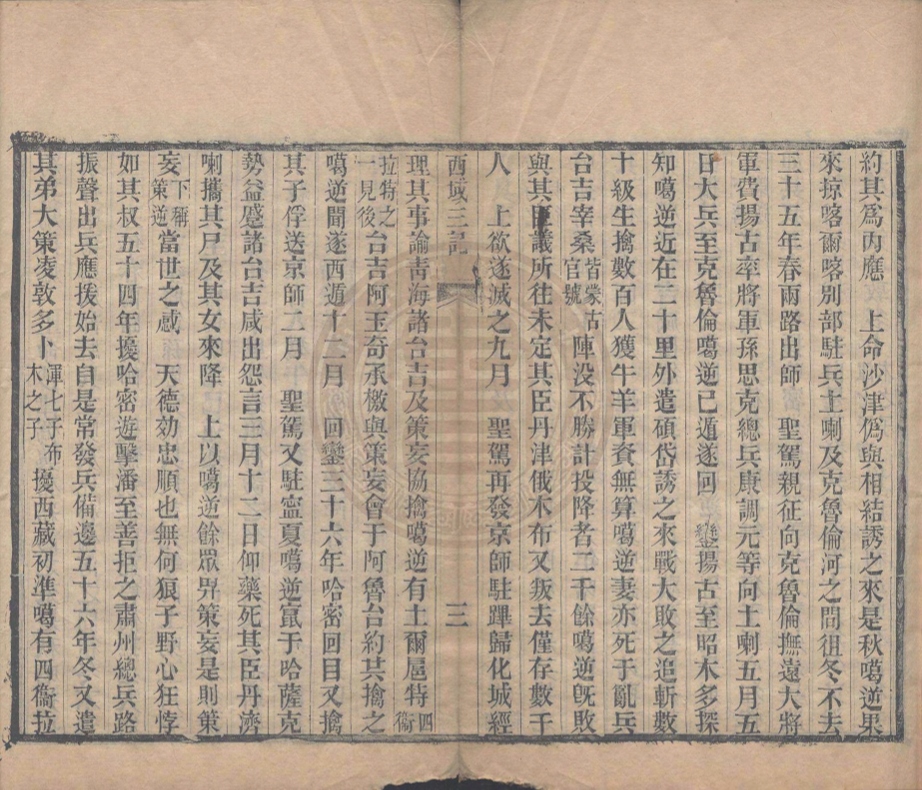 約其爲內應　上命沙津僞與相結誘之來是秋噶逆果
來掠喀爾喀別部駐兵土喇及克魯倫河之間徂冬不去
三十五年春兩路出師　聖駕親征向克魯倫撫遠大將
軍費揚古率將軍孫思克總兵康調元等向土喇五月五
日大兵至克魯倫噶逆已遁遂回　鑾揚古至昭木多探
知噶逆近在二十里外遣碩岱誘之來戰大敗之追斬數
十級生擒數百人獲牛羊軍資無算噶逆妻亦死于亂兵
台吉宰桑皆蒙古官號陣沒不勝計投降者二千餘噶逆旣敗
與其臣議所往未定其臣丹津俄木布又叛去僅存數千
人　上欲遂滅之九月　聖駕再發京師駐蹕歸化城經
西域三記　三
理其事諭靑海諸台吉及策妄協擒噶逆有土爾扈特四衞
拉特之一見後台吉阿玉奇承檄與策妄會于阿魯台約共擒之
噶逆聞遂西遁十二月　回鑾三十六年哈密回目又擒
其子俘送京師二月　聖駕又駐寧夏噶逆竄于哈薩克
勢益蹙諸台吉咸出怨言三月十二日仰藥死其臣丹濟
喇攜其尸及其女來降　上以噶逆餘眾畀策妄是則策
妄下稱策逆當世之感　天德効忠順也無何狼子野心狂悖
如其叔五十四年擾哈密遊擊潘至善拒之肅州總兵路
振聲出兵應援始去自是常發兵備邊五十六年冬又遣
其弟大策凌敦多卜渾七子布木之子擾西藏初準噶有四衞拉